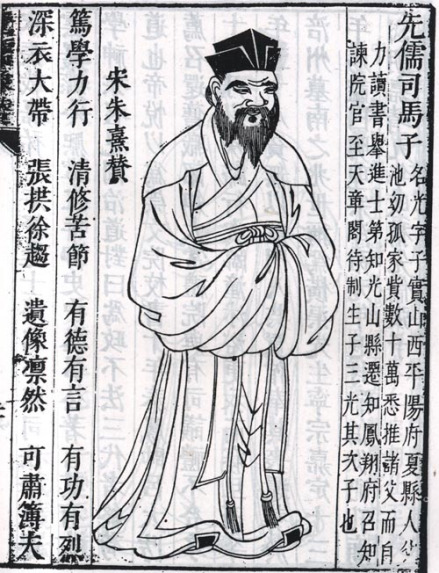 先儒司馬子
名光字子實山西平陽府夏縣人父
池幼孤家貲數十萬悉推諸父而自
力讀書舉進士第知光山縣遷知鳳翔府召知
諫院官至天章閣待制生子三光其次子也
宋朱熹贊
篤學力行 清修苦節 有德有言 有功有烈
深衣大帶 張拱徐趨 遺像凛然 可肅薄夫